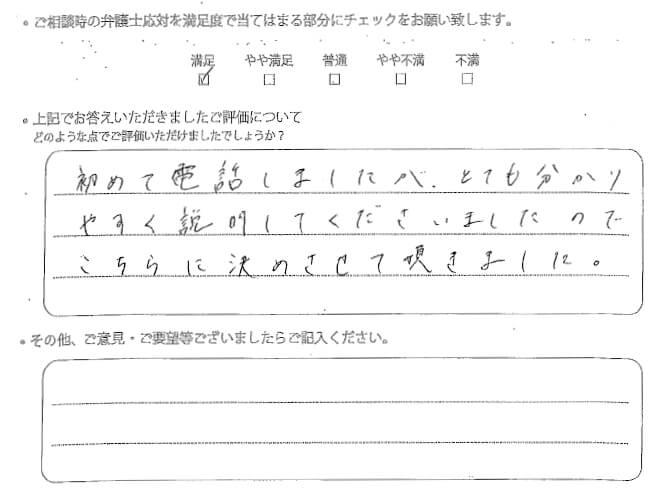 • ご相談時の弁護士応対を満足度で当てはまる部分にチェックをお願い致します。
満足 やや満足 普通 やや不満 不満
☑ □ □ □ □
• 上記でお答えいただきましたご評価について
どのような点でご評価いただけましたでしょうか?
初めて電話しましたが、とても分かり
やすく説明してくださいましたので
こちらに決めさせて頂きました。
• その他、ご意見・ご要望等ございましたらご記入ください。